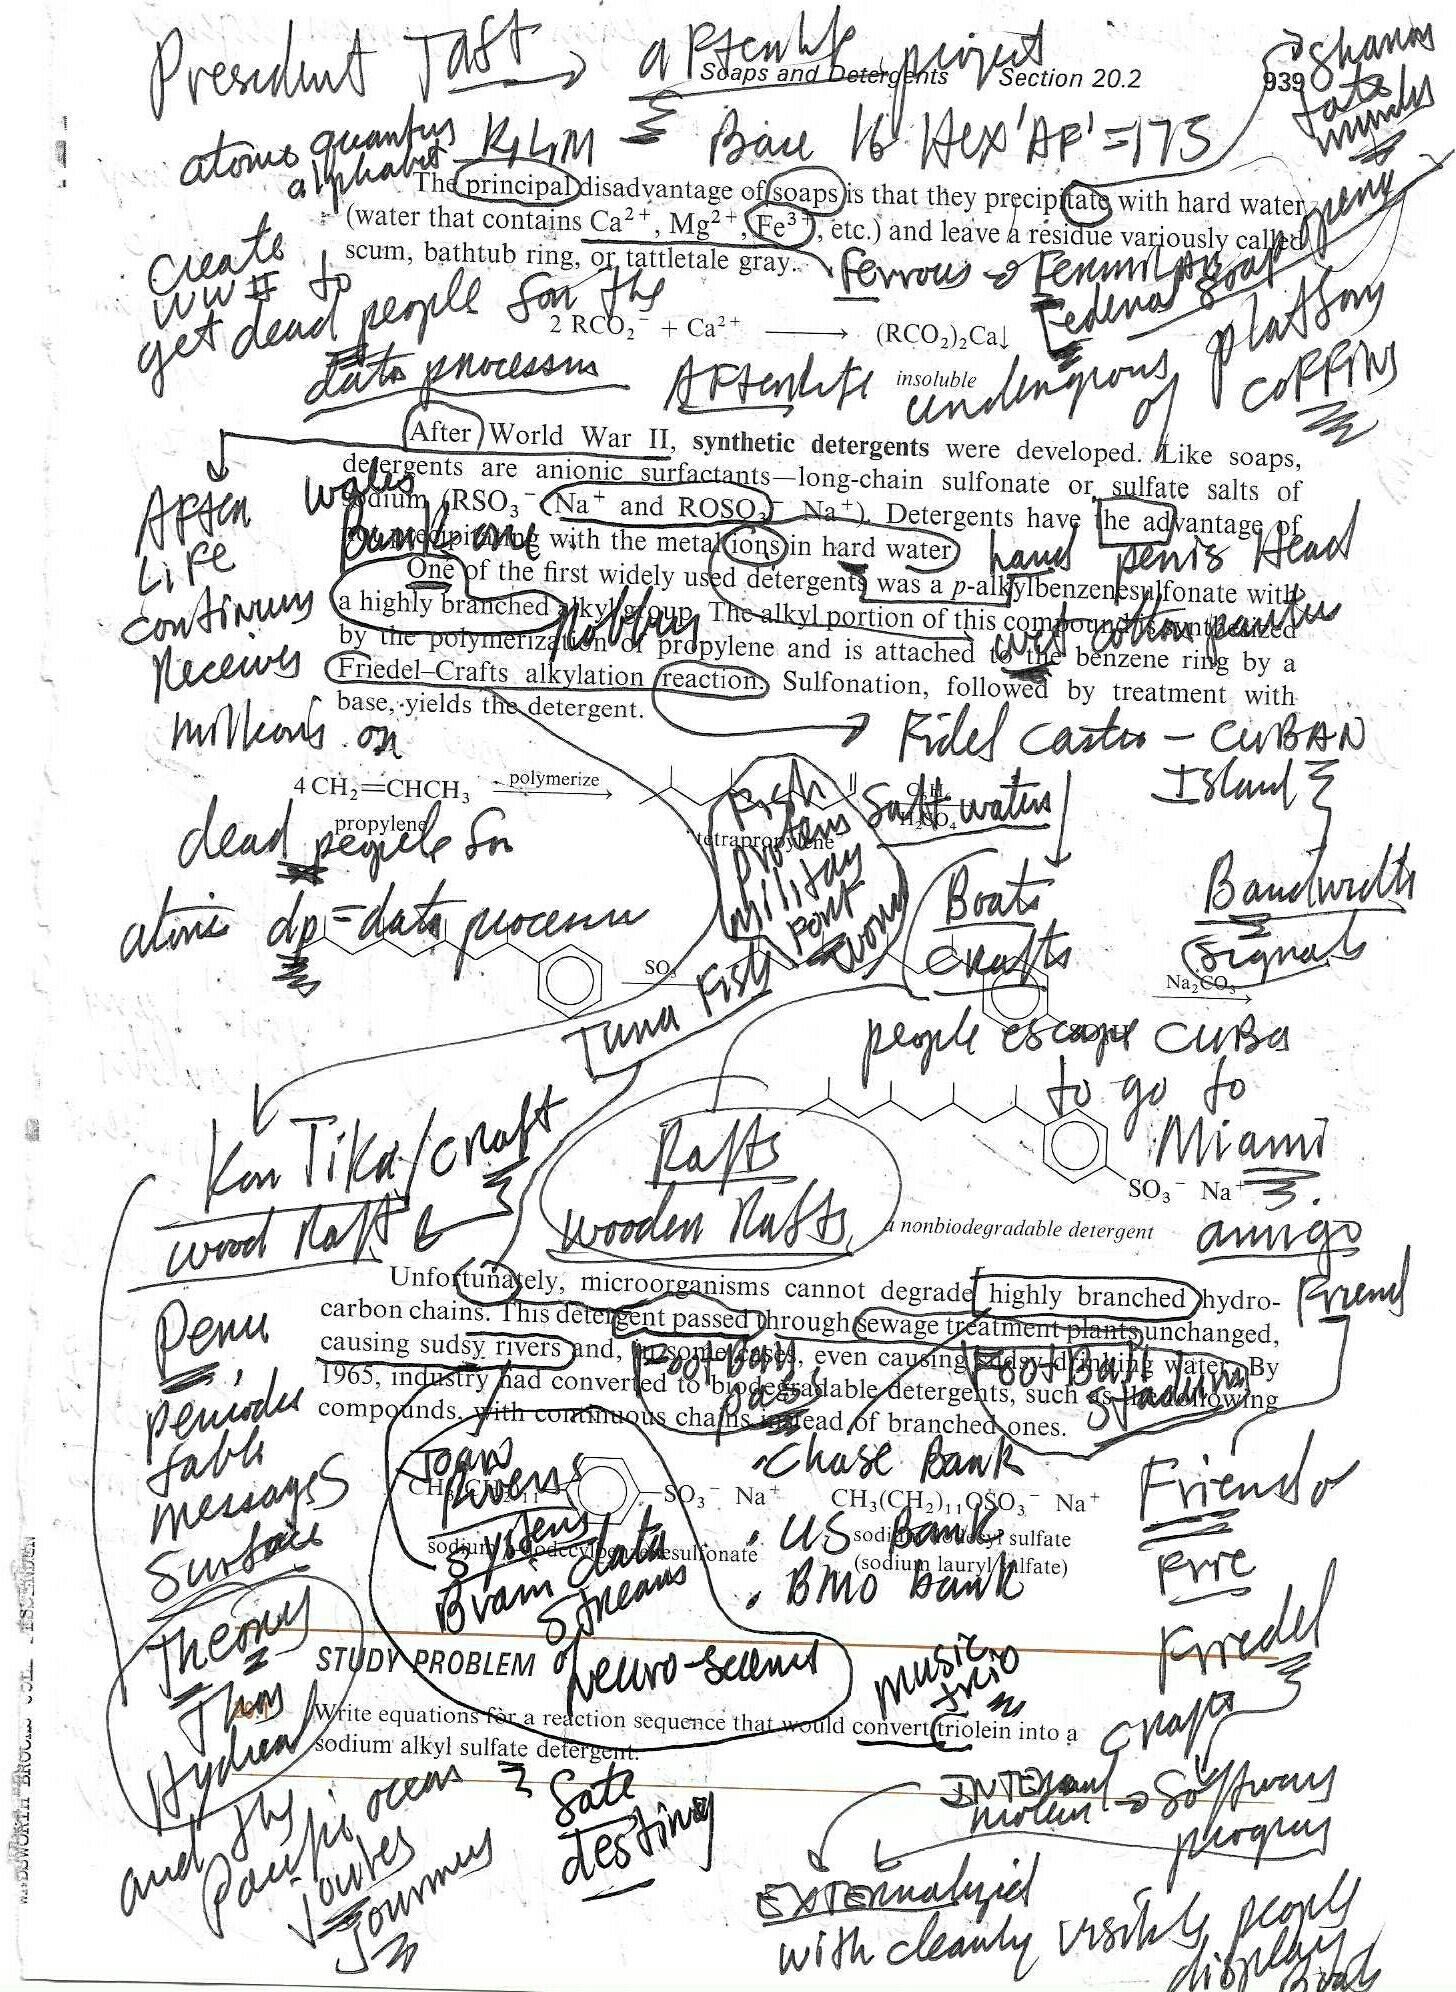 President Taft → 
Soaps and Detergents Section 20.2 939
project
atoms quantus K, L, M Base 16 Hex 'AF' = 175
alphabet
The principal disadvantage of soaps is that they precipitate with hard water
(water that contains Ca²⁺, Mg²⁺, Fe³⁺, etc.) and leave a residue variously called
scum, bathtub ring, or tattletale gray.
Ferrous →
create
WW II to
get dead people for the
2 RCO₂⁻ + Ca²⁺ ⟶ (RCO₂)₂Ca↓
insoluble
data processin
platform
of coffins
After World War II, synthetic detergents were developed. Like soaps,
detergents are anionic surfactants—long-chain sulfonate or sulfate salts of
sodium (RSO₃⁻ Na⁺ and ROSO₃⁻ Na⁺). Detergents have the advantage of
not precipitating with the metal ions in hard water.
One of the first widely used detergents was a p-alkylbenzenesulfonate with
a highly branched alkyl group. The alkyl portion of this compound is synthesized
by the polymerization of propylene and is attached to the benzene ring by a
Friedel–Crafts alkylation reaction. Sulfonation, followed by treatment with
base, yields the detergent.
wales
Bank one
robbery
hard penis Head
wet cotton panties
After
Life
continues
Receives
millions on
dead people for
atomic dp = data processin
Fidel Castro – CUBAN
Island
4 CH₂=CHCH₃ polymerize ⟶
propylene
"tetrapropylene"
C₆H₆
H₂SO₄
Salt waters
Fish
proteins
military
port
Boats
crafts
Bandwidth
signals
SO₃
Na₂CO₃
Tuna Fish
people escape CUBA
to go to
Miami
amigo
Friend
Kon Tika/craft
wood Raft
Rafts
wooden Rafts
SO₃⁻ Na⁺
a nonbiodegradable detergent
Unfortunately, microorganisms cannot degrade highly branched hydro-
carbon chains. This detergent passed through sewage treatment plants unchanged,
causing sudsy rivers and, in some cases, even causing sudsy drinking water. By
1965, industry had converted to biodegradable detergents, such as the following
compounds, with continuous chains instead of branched ones.
Football
pass
Football
stadium
Peru
periodic
table
messages
Surface
Theory
Thor
Hydrea
and the
Pacific ocean
Joan
Rivers
systems
Brain data
streams
of
neuro-science
• Chase Bank
• US Bank
• BMO bank
SO₃⁻ Na⁺ CH₃(CH₂)₁₁OSO₃⁻ Na⁺
sodium p-dodecylbenzenesulfonate
sodium dodecyl sulfate
(sodium lauryl sulfate)
Friend or
Friedel
crafts
STUDY PROBLEM
music
trio
Write equations for a reaction sequence that would convert triolein into a
sodium alkyl sulfate detergent.
Safe
testing
→ Software
program
EXTERNALYZID
with clearly visible people
display
Boats